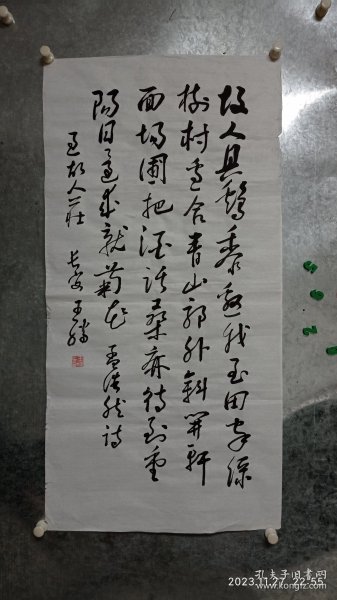 故人具鷄黍邀我至田家绿
树村边合青山郭外斜開軒
面場圃把酒话桑麻待到重
陽日还来就菊花 孟浩然诗
过故人莊 长安王
孔夫子旧书网
2023.11.27 22:55